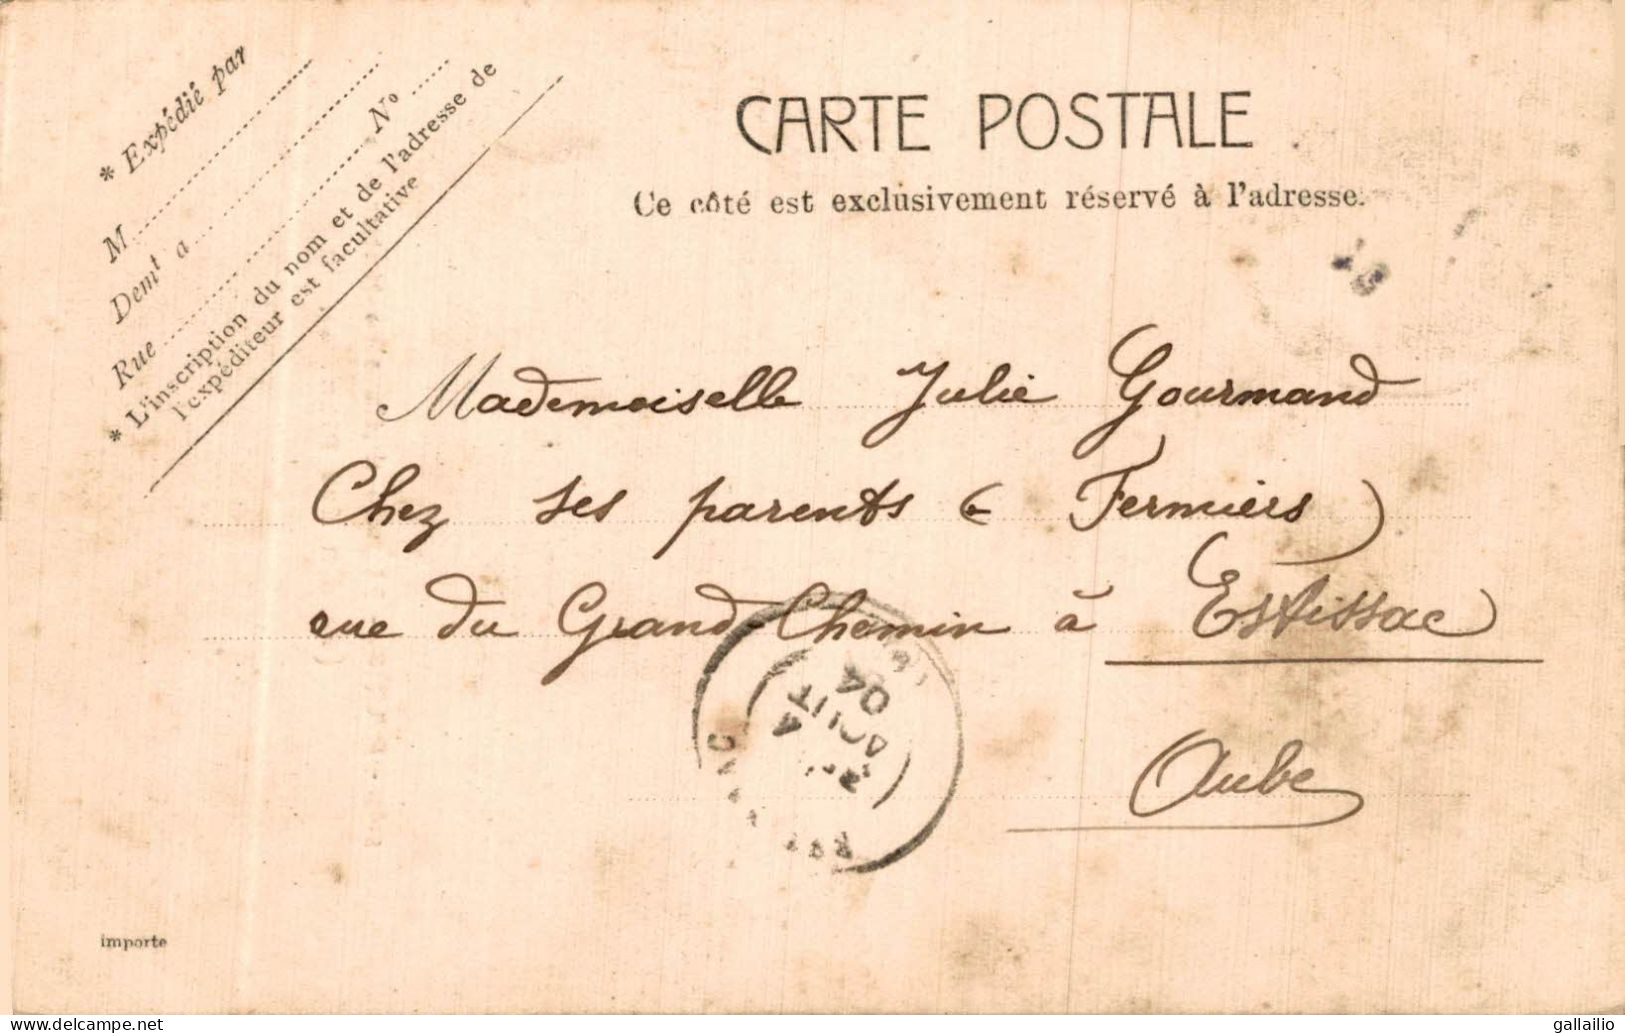 * Expédié par
M
Demt a
Rue N°
* L'inscription du nom et de l'adresse de
l'expéditeur est facultative
CARTE POSTALE
Ce côté est exclusivement réservé à l'adresse.
Mademoiselle Julie Gourmand
Chez ses parents (Fermiers)
rue du Grand Chemin à Estissac
Aube
4
AOUT
04
importe
delcampe.net
gallailio